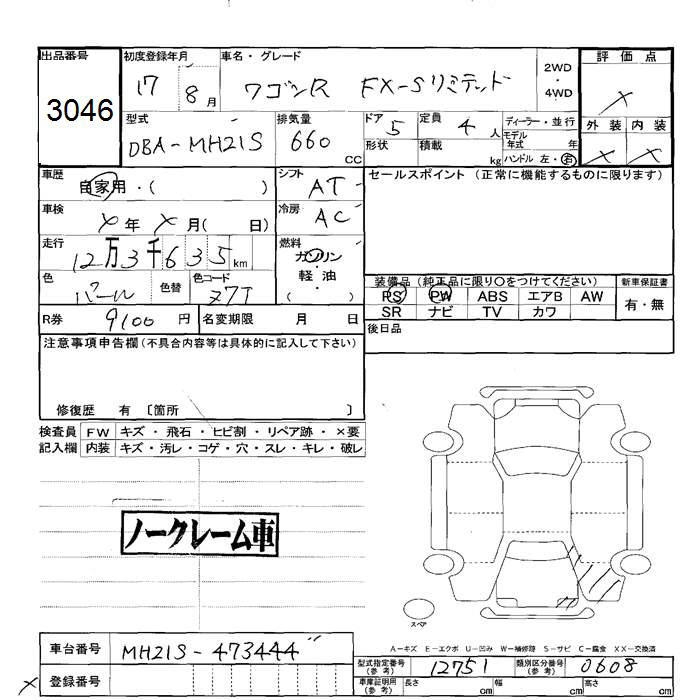 出品番号 初度登録年月 車名・グレード 2WD・4WD 評価点
3046 17 8月 ワゴンR FX-Sリミテッド ×
型式 排気量 ドア 定員 ディーラー・並行 外装 内装
DBA-MH21S 660 CC 5 4人 モデル年式 年 × ×
形状 積載 kg ハンドル 左・右
車歴 シフト セールスポイント (正常に機能するものに限ります)
自家用・( ) AT
車検 冷房
×年 ×月( 日) AC
走行 燃料
12万3千635km ガソリン
色 色替 色コード 軽・油
パール Z7T ( )
装備品 (純正品に限り〇をつけてください) 新車保証書
PS PW ABS エアB AW 有・無
SR ナビ TV カワ
R券 9100円 名変期限 月 日
後日品
注意事項申告欄(不具合内容等は具体的に記入して下さい)
修復歴 有 〔箇所 〕
検査員 FW キズ・飛石・ヒビ割・リペア跡・×要
記入欄 内装 キズ・汚レ・コゲ・穴・スレ・キレ・破レ
ノークレーム車
スペア
A−キズ E−エクボ U−凹み W−補修跡 S−サビ C−腐食 XX−交換済
車台番号 MH21S-473444
型式指定番号(参考) 12751 類別区分番号(参考) 0608
登録番号
×
車庫証明用(参考) 長さ cm 幅 cm 高さ cm